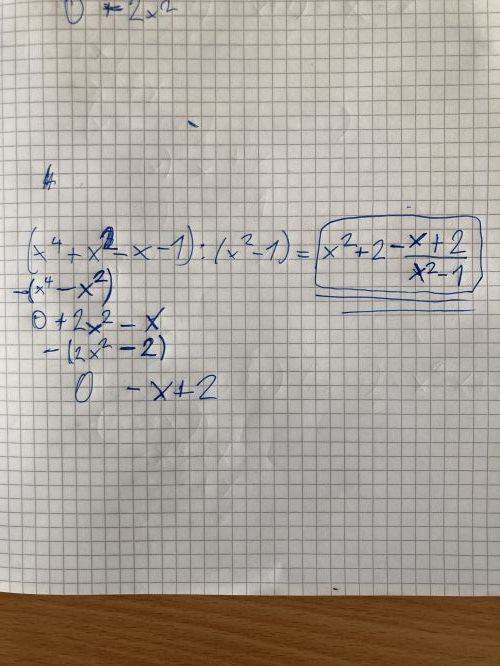 0 + 2x²
(x⁴ + x² - x - 1) : (x² - 1) = x² + 2 - x + 2 / x² - 1
- (x⁴ - x²)
0 + 2x² - x
- (2x² - 2)
0 - x + 2